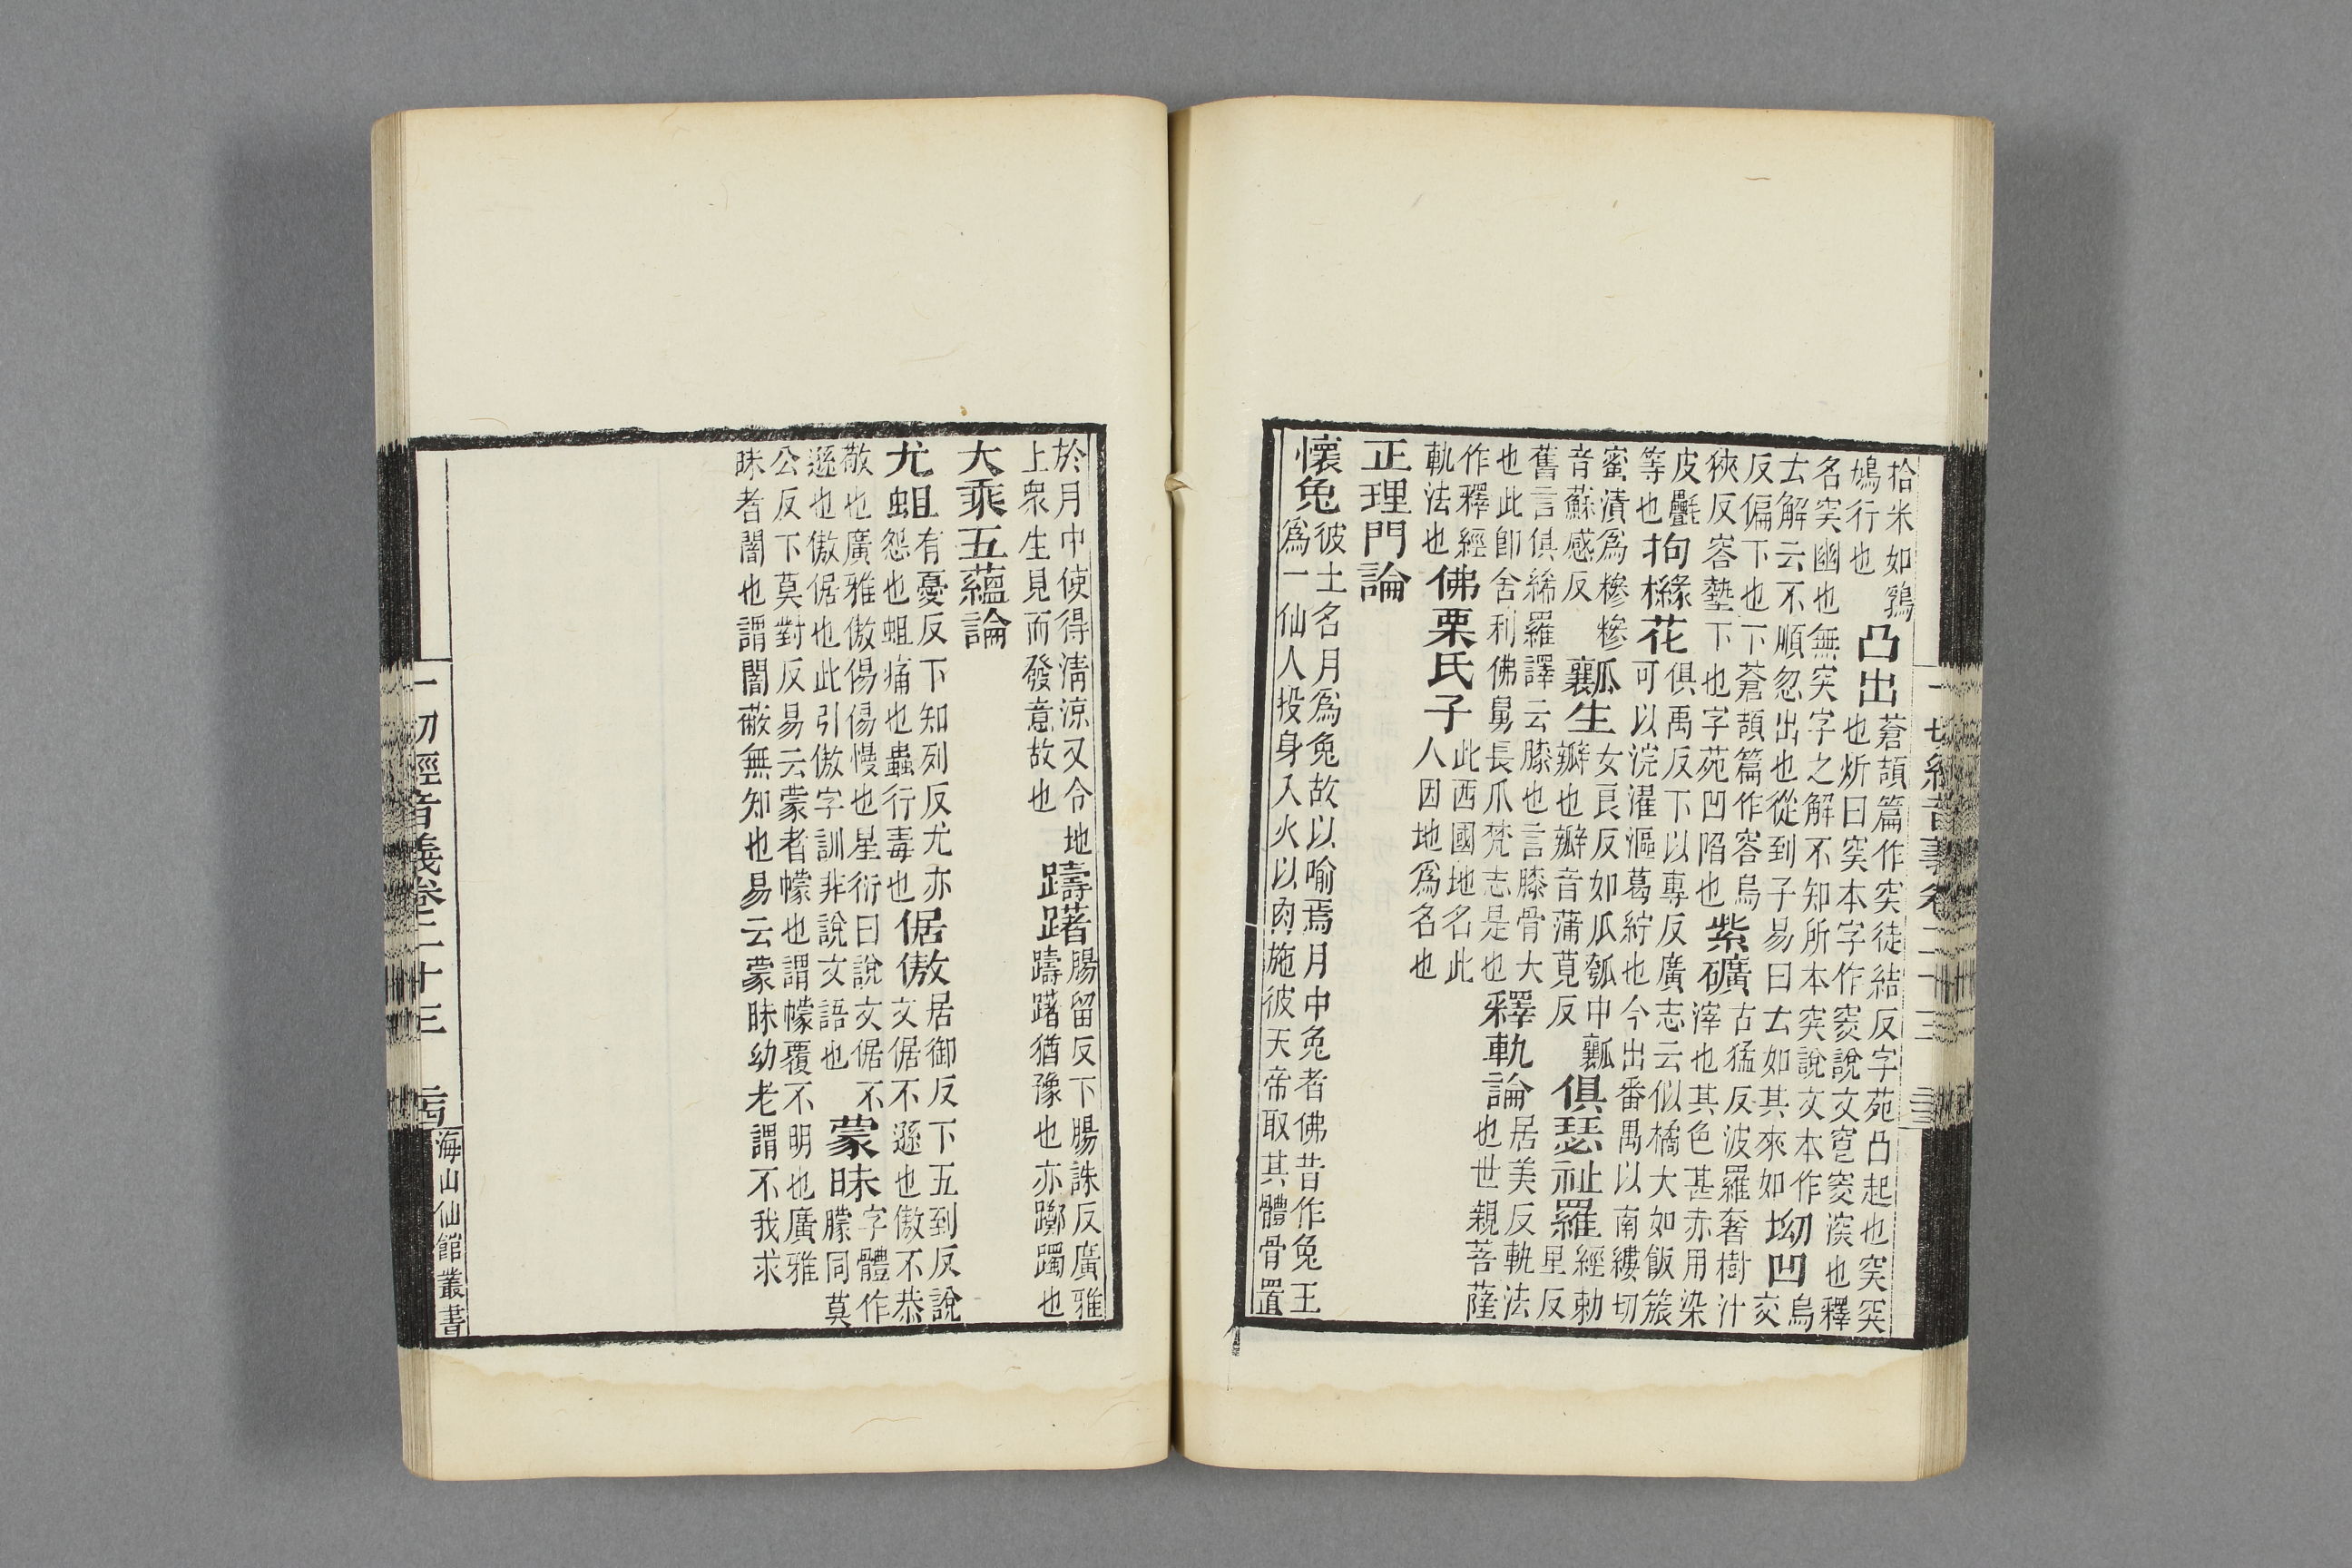 一切經音義卷二十三
拾米如鷄鳩行也凸出蒼頡篇作突徒結反字苑凸起也突突也炘曰突本字作窔說文窅窔深也釋
名突幽也無突字之解不知所本突說文本作𠫓解云不順忽出也從到子易曰𠫓如其來如坳凹烏交
反偏下也下蒼頡篇作容烏狹反容墊下也字苑凹陷也紫礦古猛反波羅奢樹汁滓也其色甚赤用染
皮㲲等也枸櫞花俱禹反下以專反廣志云似橘大如飯筯可以浣濯漚葛紵也今出番禺以南縷切
蜜漬爲糝糝音蘇感反瓤生女良反如瓜瓠中瓤瓣也瓣音蒲莧反俱瑟祉羅經勅里反
舊言俱絺羅譯云膝也言膝骨大也此卽舍利佛舅長爪梵志是也釋軌論居美反軌法也世親菩薩
作釋經軌法也佛栗氏子此西國地名此人因地爲名也
正理門論
懷兔彼土名月爲兔故以喻焉月中兔者佛昔作兔王爲一仙人投身入火以肉施彼天帝取其體骨置
於月中使得淸涼又令地上衆生見而發意故也躊躇腸留反下腸誅反廣雅躊躇猶豫也亦躑躅也
大乘五蘊論
尤蛆有憂反下知列反尤亦怨也蛆痛也蟲行毒也倨傲居御反下五到反說文倨不遜也傲不恭
敬也廣雅傲傷傷慢也星衍曰說文倨不遜也傲倨也此引傲字訓非說文語也蒙昧字體作朦同莫
公反下莫對反易云蒙者幪也謂幪覆不明也廣雅昧者闇也謂闇蔽無知也易云蒙昧幼老謂不我求
一切經音義卷二十三
海山仙館叢書